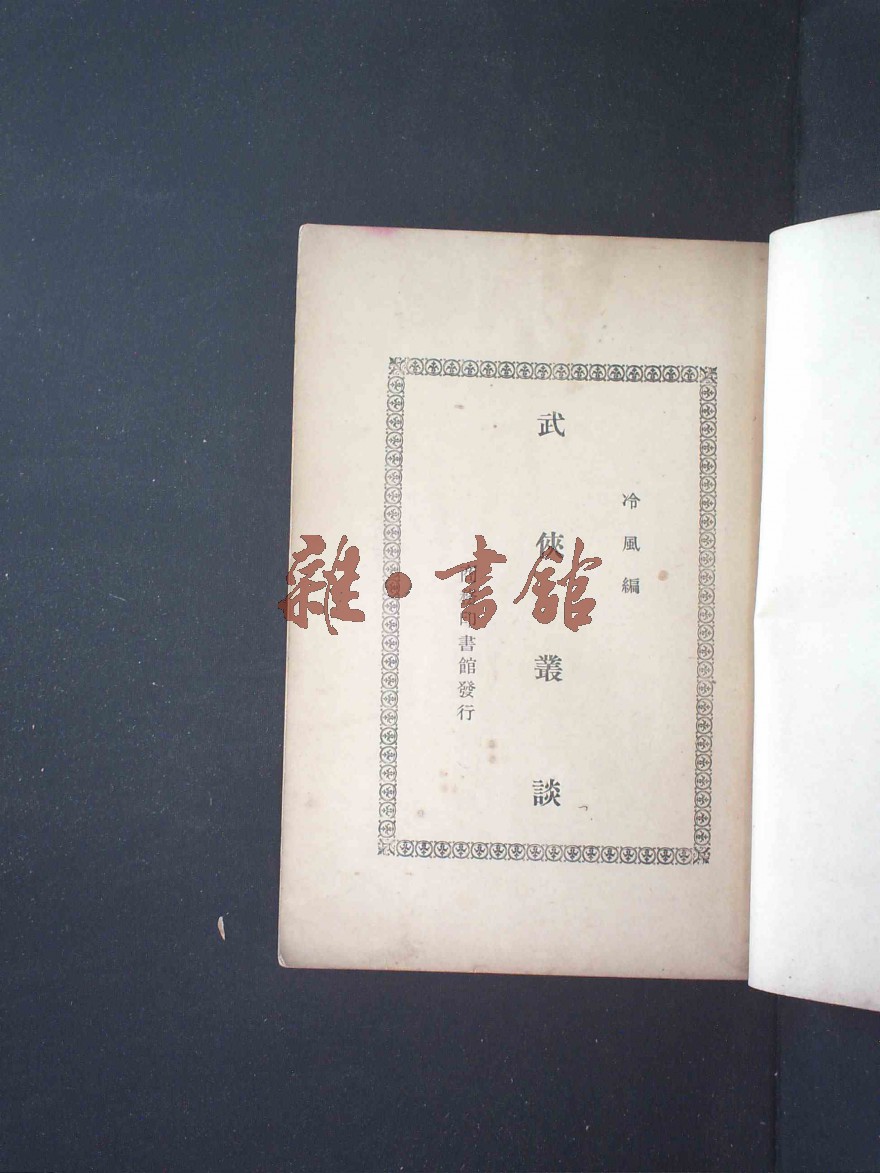 冷風編
武俠叢談
商務印書館發行
雜·書館